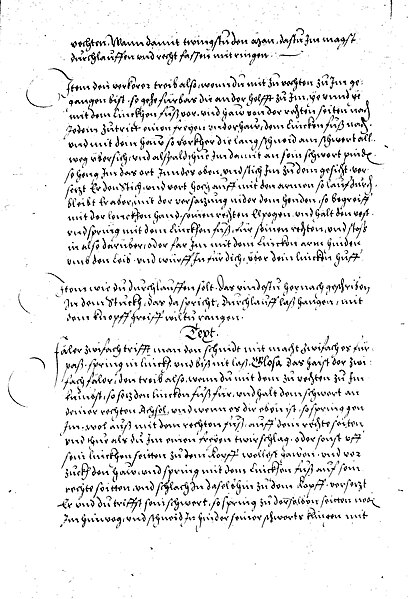 vechten, Wann damit twingstu den man, dastu Im magst
durchlauffen und recht fassen mit ringen.
Item den verkerer treib also, wenn du mit zu vechten zu Im ge-
gangen bist, so gehe fürbas die ander helfft zu Im, ye und ye
mit dem lincken fuß vor, und haw von der rechten seiten nach
Jedem zutrit einen freyen underhaw, dem lincken fuß nach
und mit dem haw so verkher die lang schneid am schwert all-
weg übersich, und alspald ihme Im damit an sein schwert pindest
so heng Im das ort Inder oben, und stich Im zu dem gesicht, ver-
setzt Er den Stich, und vert hoch auff mit den armen so lauff durch
bleibt Er aber mit der versatzung nider dem henden, so begreiff
mit der lincken hand seinen rechten Elpogen, und halt den vest
und spring mit dem lincken fuß, für seinen rechten, und stoß
in also darüber, oder far Im mit dem lincken arm hinden
umb den leib und würff In für dich, über dein lincken hüff
Item wie du durchlauffen solt, das vindestu hernach geschriben
In dem Stuck, das da spricht, durchlauff las hangen, mit
dem knopff greiff wiltu rangen.
Text.
faler zwifach trifft man den schnidt mit macht zwifach es für-
paß, spring in linck und biß mit laß, Glosa das haist der zwi-
fach faler, den treib also, wenn du mit dem zu vechten zu Im
kumbst, so setz den lincken fuß für, und halt dein schwert an
deiner rechten Achsel, und wenn es dir eben ist, so spring gen
Im, wol auß mit dem rechten fuß, auff dein rechte seiten
und thue als du Im einen freyen twirschlag, oder sonst uff
sein lincken seiten zu dem kopff wollest hawen, und ver-
zuck den haw, und spring mit dem lincken fuß auff sein
rechte seiten, und schlach In daselbshin zu dem kopff, versetzt
Er und du triffst sein schwert, so spring zu derselben seiten neben
Im hinweg, und schneid In hinder seines schwerts klingen mit